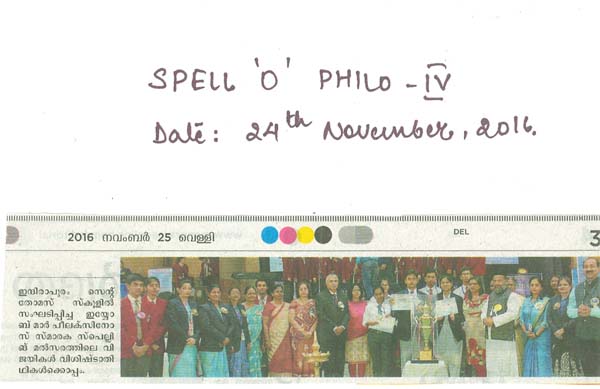 SPELL 'O' PHILO - IV
Date: 24th November, 2016.
2016 നവംബർ 25 വെള്ളി
DEL
3
ഇന്ദിരാപുരം സെന്റ്
തോമസ് സ്കൂളിൽ
സംഘടിപ്പിച്ച ഇയ്യോ
ബ് മാർ പീലക്സിനോ
സ് സ്മാരക സ്പെല്ലി
ങ് മൽസരത്തിലെ വി
ജയികൾ വിശിഷ്ടാതി
ഥികൾക്കൊപ്പം.